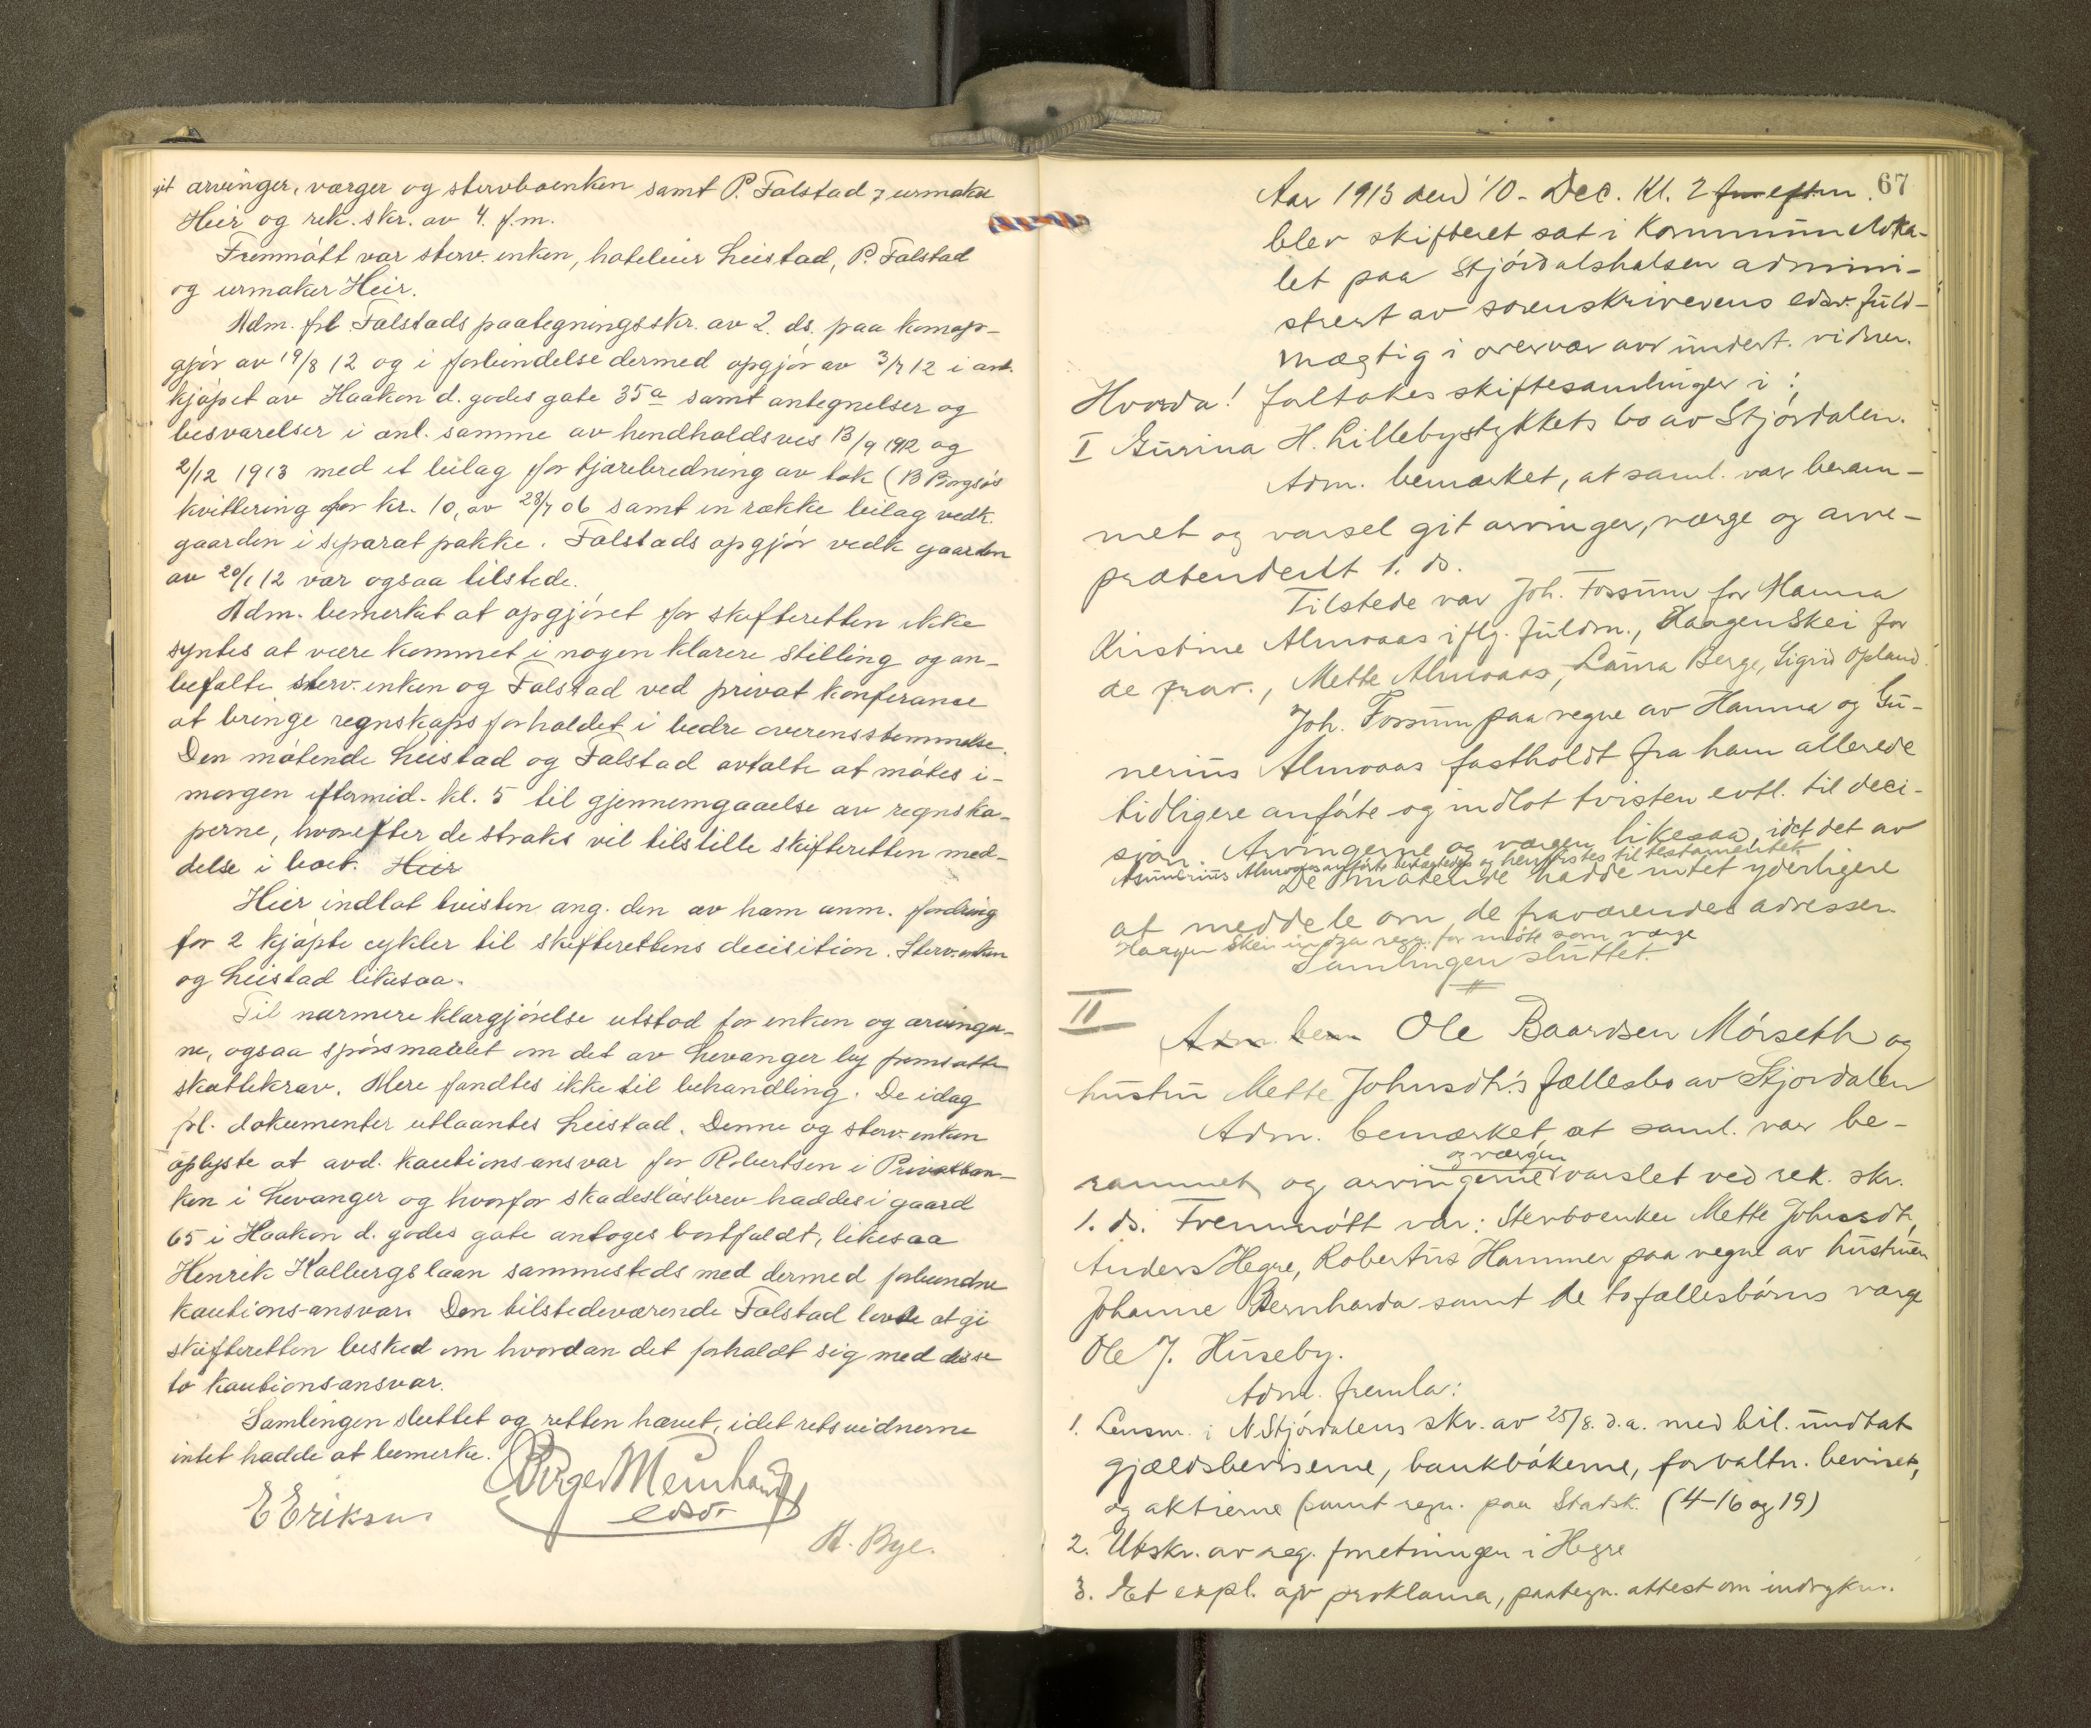 git arvinger, værger og stervboenken samt P. Falstad, urmaker
Heir og rek. skr. av 4. f.m.
Fremmøtt var sterv. enken, hoteleier Leistad, P. Falstad
og urmaker Heir.
Adm. frl Falstads paategningsskr. av 2. ds. paa komop-
gjör av 19/8 12 og i forbindelse dermed opgjör av 3/7 12 i anl.
kjöpet av Haakon d. godes gate 35a samt antegnelser og
besvarelser i anl. samme av hendholdsves 13/9 1912 og
2/12 1913 med et bilag for tjærebredning av tak (B Borgsös
kvittering for kr. 10, av 28/7 06 samt en række bilag vedk.
gaarden i separat pakke. Falstads opgjör vedk gaarden
av 20/1 12 var ogsaa tilstede.
Adm. bemerket at opgjöret for skifteretten ikke
syntes at være kommet i nogen klarere stilling og an-
befalte sterv. enken og Falstad ved privat konferanse
at bringe regnskapsforholdet i bedre overensstemmelse.
Den mötende Leistad og Falstad avtalte at mötes i-
morgen eftermid. kl. 5 til gjennemgaaelse av regnska-
perne, hvorefter de straks vil tilstille skifteretten med-
delse i boet. Heir
Heir indlot tvisten ang. den av ham anm. fordring
for 2 kjöpte cykler til skifterettens decisition. Sterv. enken
og Leistad likesaa.
Til nærmere klargjörelse utstod for enken og arvinger-
ne, ogsaa spörsmaalet om det av Levanger by fremsatte
skattekrav. Mere fandtes ikke til behandling. De idag
frl. dokumenter utlaantes Leistad. Denne og sterv. enken
oplyste at avd. kautionsansvar for Robertsen i Privatban-
ken i Levanger og hvorfor skadeslösbrev haddes i gaard
65 i Haakon d. godes gate antoges bortfaldt, likesaa
Henrik Kalbergs laan sammesteds med dermed forbundne
kautionsansvar. Den tilstedeværende Falstad lovde at gi
skifteretten besked om hvordan det forholdt sig med disse
to kautionsansvar.
Samlingen sluttet og retten hævet, idet retsvidnerne
intet hadde at bemerke.
Birger Meinhardt
edsv.
E Eriksen
A. Bye.
67
Aar 1913 den 10. Dec. Kl. 2 eftm.
blev skifteret sat i Kommuneloka-
let paa Stjördalshalsen admini-
strert av sorenskriverens edsv. fuld-
mægtig i overvær avr undert. vidner.
Hvorda! foltokes skiftesamlinger i:
I Gurina H. Lillebystykkets bo av Stjördalen.
Adm. bemærket, at saml. var beram-
met og varsel git arvinger, værge og arve-
prætendent 1. ds.
Tilstede var Joh. Fossum for Hanna
Kristine Almoaas iflg. fuldm., Haagen Skei for
de frav., Mette Almoaas, Laura Berge, Sigrid Opland.
Joh. Fossum paa vegne av Hanna og Gu-
nerius Almoaas fastholdt fra ham allerede
tidligere anförte og indlot tvisten evtl. til deci-
sjon. Arvingerne og værgen likesaa, idet det av
Gunerius Almoaas anförte og henvistes til testamentet
De mötende hadde intet yderligere
at meddele om de fraværendes adresser.
Haagen Skei indga regn. for möte som værge
Samlingen sluttet.
II
Adm. bem. Ole Baardsen Mörseth og
hustru Mette Johnsdt.'s fællesbo av Stjordalen
Adm. bemærket, at saml. var be-
og værgen
rammet, og arvingerne varslet ved rek. skr.
1. ds. Fremmött var: Stervboenken Mette Johnsdt,
Anders Hegre, Robertus Hammer paa vegne av hustruen
Johanne Bernharda samt de to fællesbörns værge
Ole J. Huseby.
Adm. fremla:
1. Lensm. i N. Stjördalens skr. av 25/8. d.a. med bil. undtat
gjældsbeviserne, bankbökerne, forvaltn. beviset,
og aktierne samt regn. paa Statsk. (4-16 og 19)
2. Utskr. av reg. forretningen i Hegre
3. Et expl. av proklama, paategn. attest om indrykn.